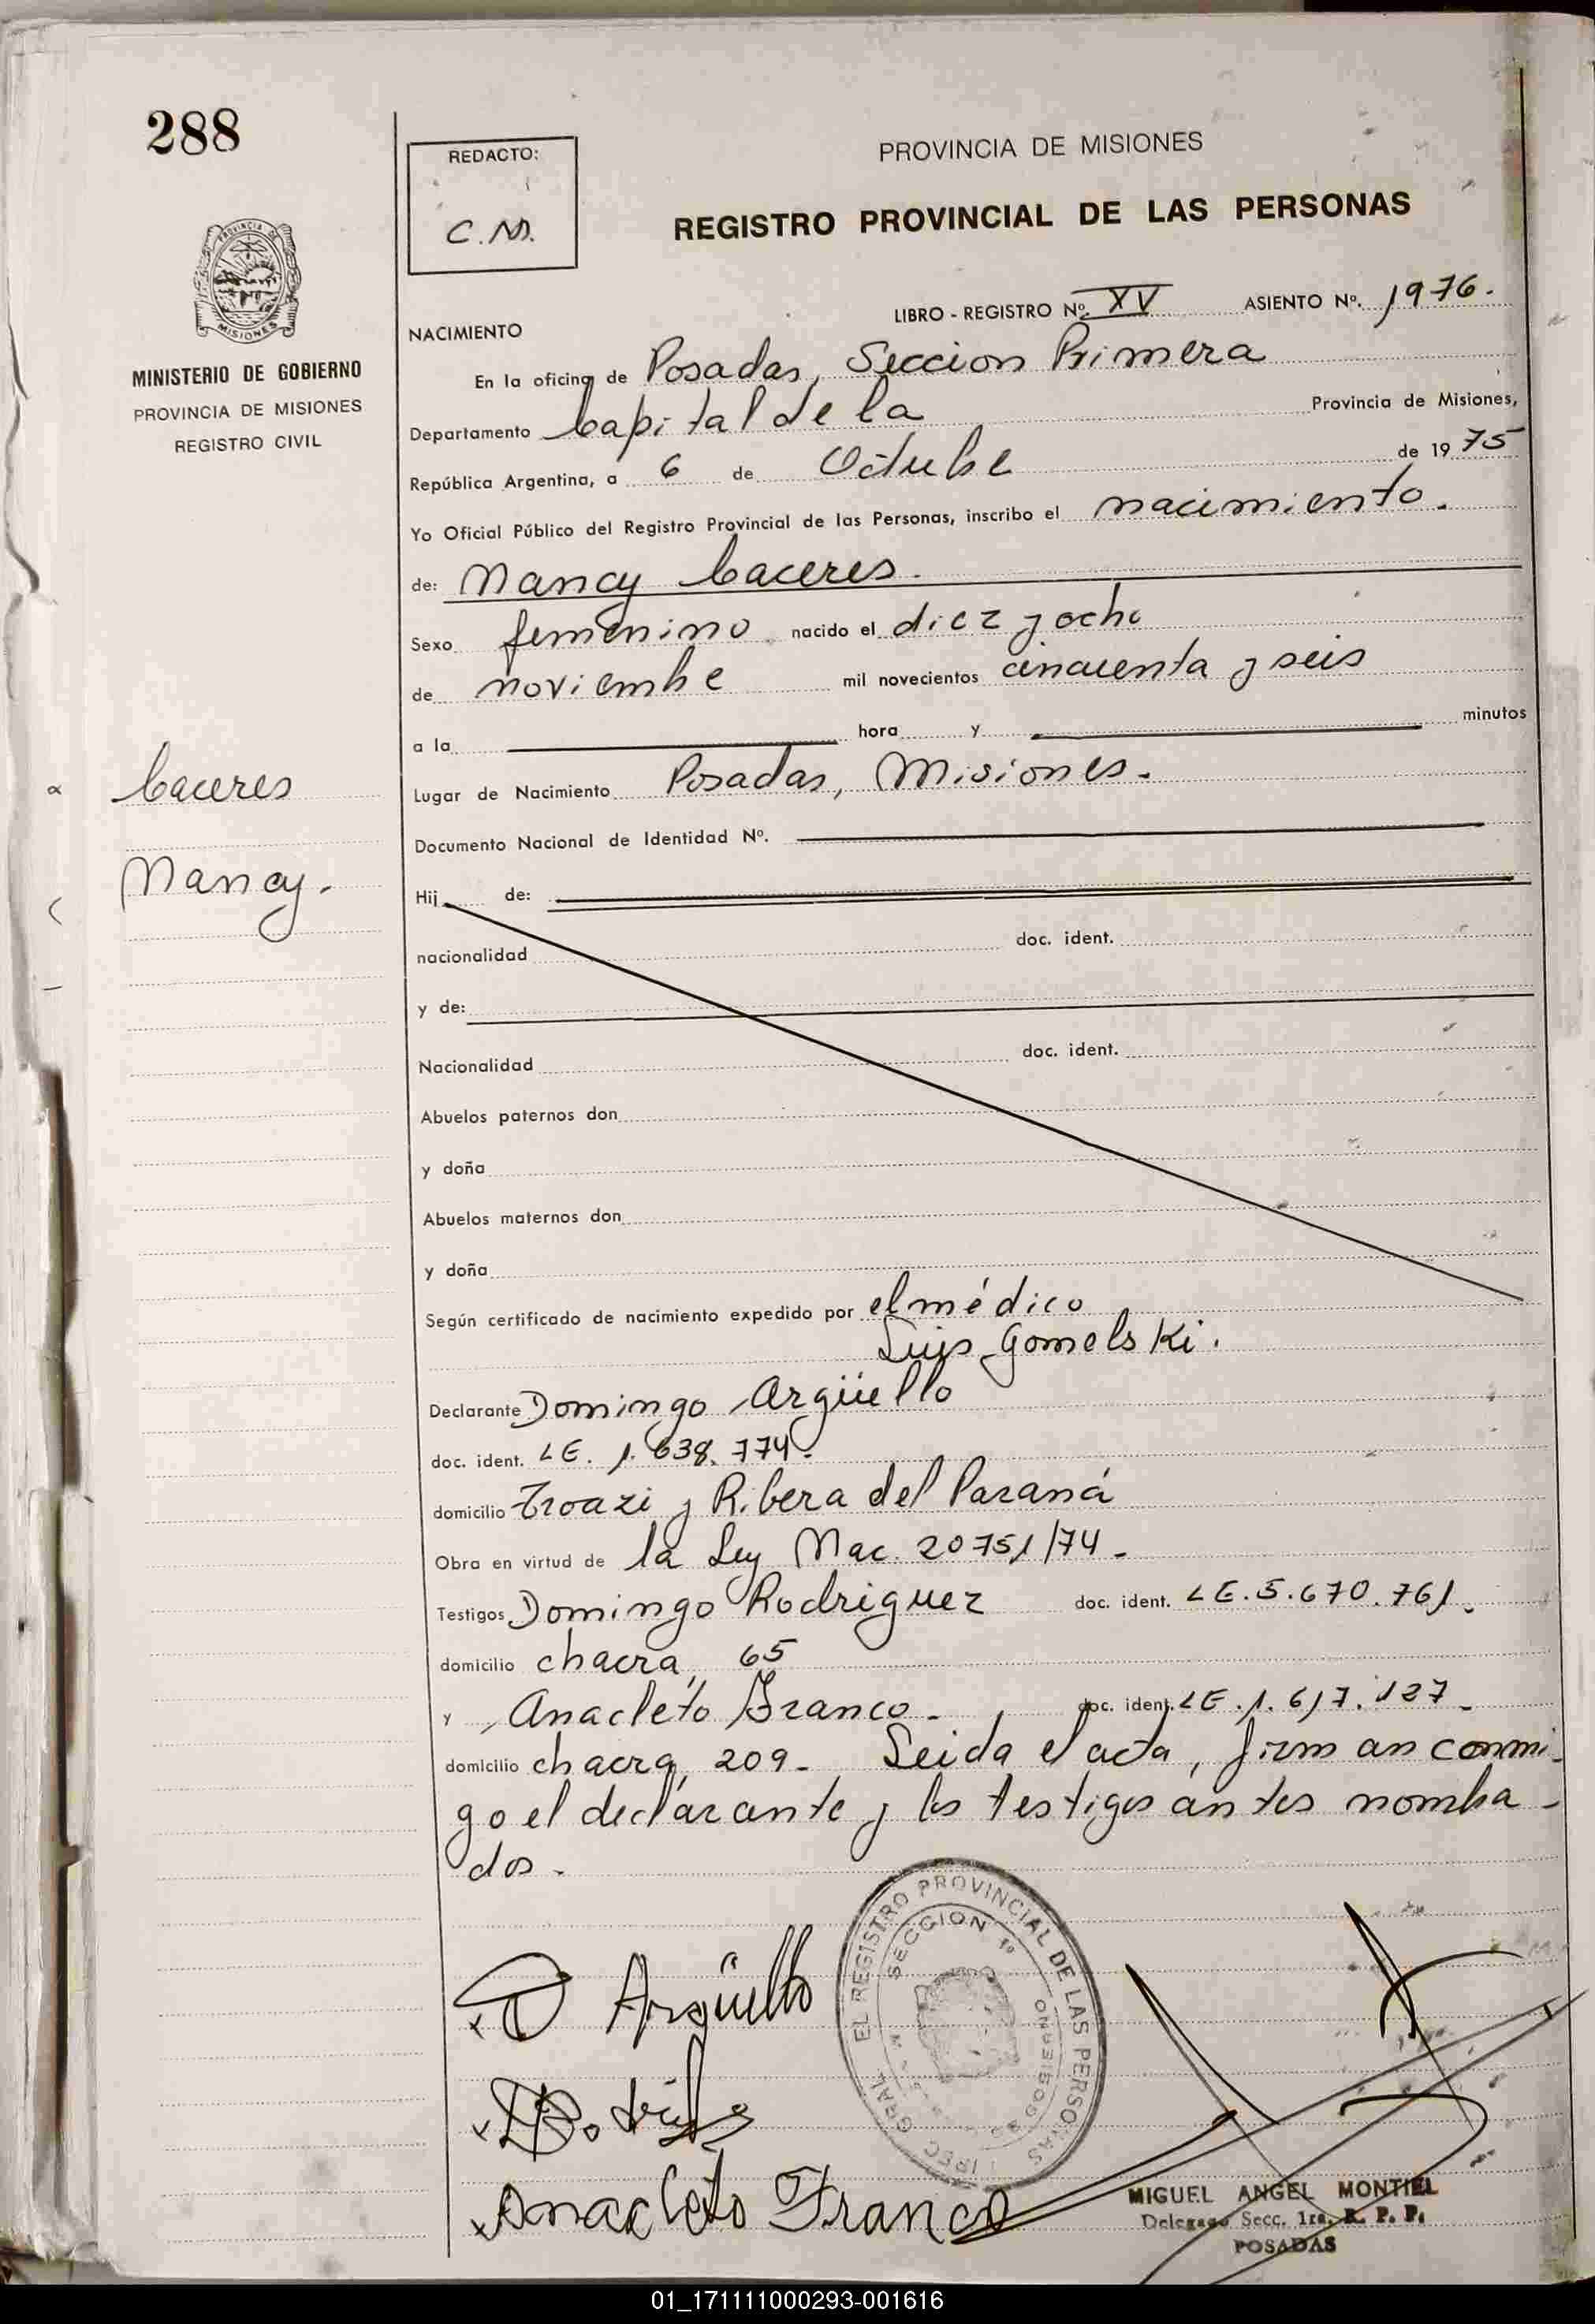 288
REDACTO:
C.M.
PROVINCIA DE MISIONES
REGISTRO PROVINCIAL DE LAS PERSONAS
PROVINCIA DE
MISIONES
MINISTERIO DE GOBIERNO
PROVINCIA DE MISIONES
REGISTRO CIVIL
LIBRO - REGISTRO Nº. XV ASIENTO Nº. 1976.
NACIMIENTO
En la oficina de Posadas, Seccion Primera
Departamento Capital de la Provincia de Misiones,
República Argentina, a 6 de Octubre de 1975
Yo Oficial Público del Registro Provincial de las Personas, inscribo el nacimiento.
de: Nancy Caceres.
Sexo femenino nacido el diez y ocho
de noviembre mil novecientos cincuenta y seis
a la hora y minutos
Caceres
Nancy.
Lugar de Nacimiento Posadas, Misiones.
Documento Nacional de Identidad Nº.
Hij de:
nacionalidad doc. ident.
y de:
Nacionalidad doc. ident.
Abuelos paternos don
y doña
Abuelos maternos don
y doña
Según certificado de nacimiento expedido por el médico
Luis Gomelski.
Declarante Domingo Argüello
doc. ident. LE. 1.638.774.
domicilio y Ribera del Paraná
Obra en virtud de la Ley Nac. 20751/74.
Testigos Domingo Rodriguez doc. ident. LE.5.670.761.
domicilio chacra, 65
y Anacleto Franco. doc. ident. LE.1.617.127.
domicilio chacra, 209. Leida el acta, firman conmi-
go el declarante y los testigos antes nombra-
dos.
D Argüello
Anacleto Franco
EL REGISTRO PROVINCIAL DE LAS PERSONAS
SECCION 1º
MIGUEL ANGEL MONTIEL
Delegado Secc. 1ra. R. P. P.
POSADAS
01_171111000293-001616